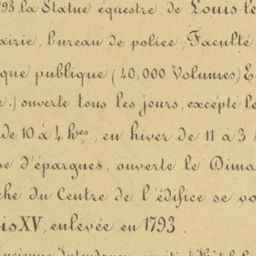 93 la Statue équestre de Louis le
airie, bureau de police, Faculté
que publique (40,000 Volumes) E
.) ouverte tous les jours, excépté le
de 10 à 4 hes, en hiver de 11 à 3
e d'épargnes, ouverte le Dima
che du Centre de l'édifice se vo
is XV, enlevée en 1793.